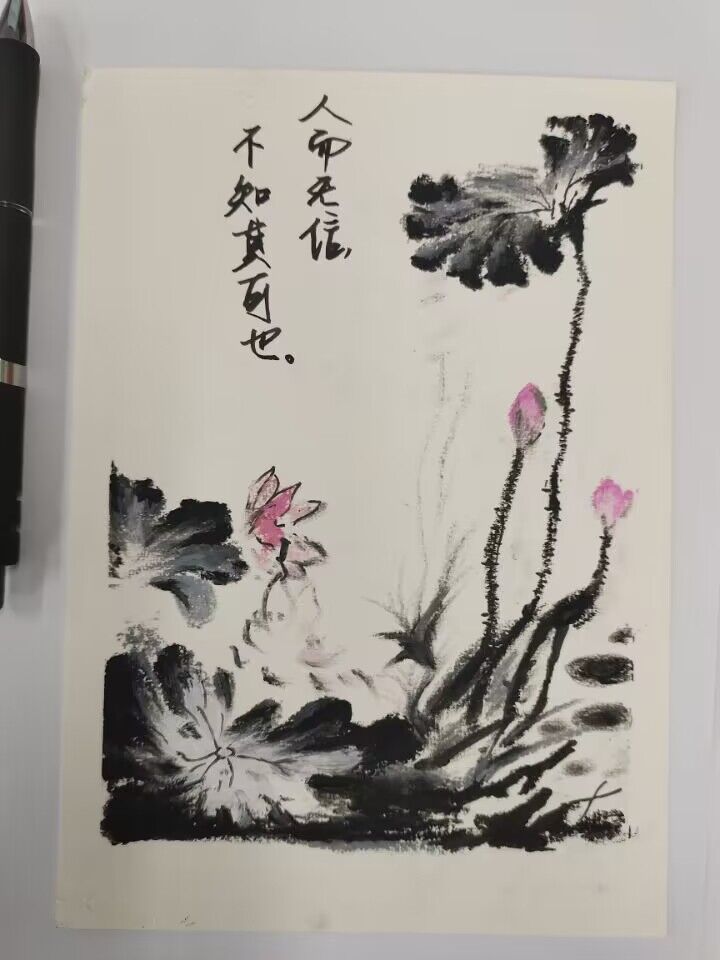 人而无信，
不知其可也。